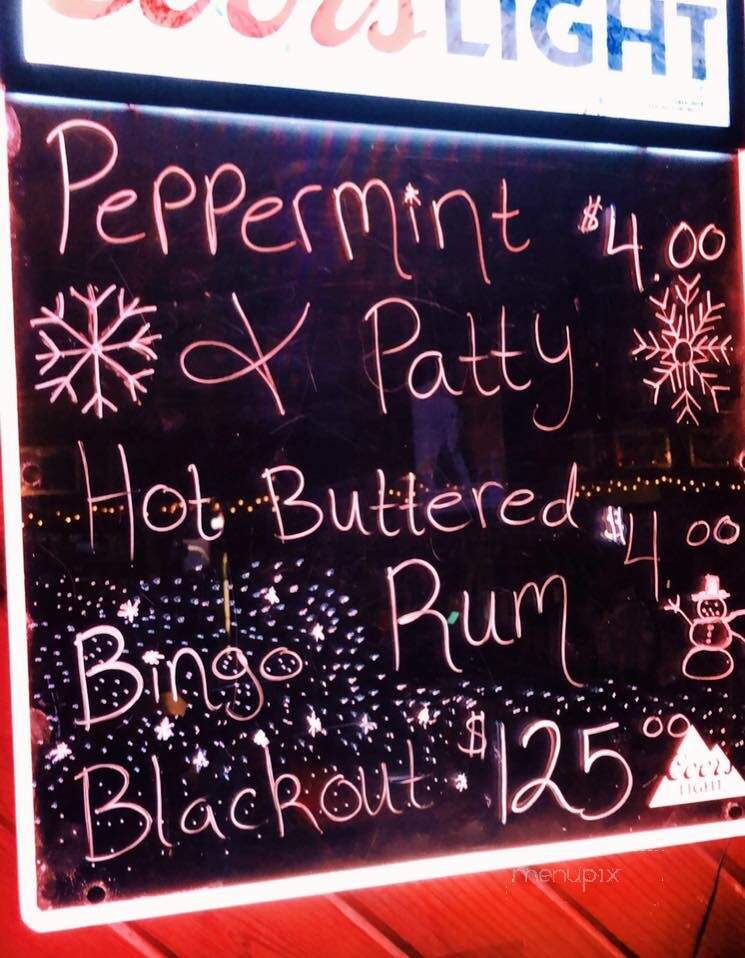 Coors LIGHT
Peppermint $4.00
& Patty
Hot Buttered $4.00
Rum
Bingo
Blackout $125.00
Coors
LIGHT
menupix